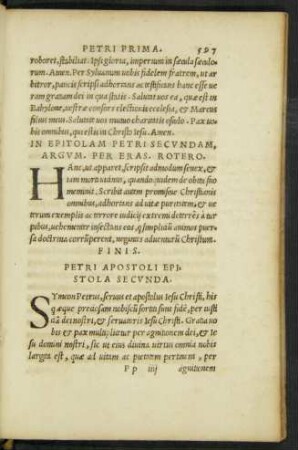 PETRI PRIMA. 597
roboret, stabiliat: Ipsi gloria, imperium in sæcula sæculo-
rum. Amen. Per Syluanum uobis fidelem fratrem, ut ar
bitror, paucis scripsi adhortans ac testificans hanc esse ue
ram gratiam dei in qua statis. Salutat uos ea, quæ est in
Babylone, uestræ consors electionis ecclesia, & Marcus
filius meus. Salutate uos mutuo charitatis osculo. Pax uo
bis omnibus, qui estis in Christo Iesu. Amen.
IN EPITOLAM PETRI SECVNDAM,
ARGVM. PER ERAS. ROTERO.
HAnc, ut apparet, scripsit admodum senex, &
iam morti uicinus, quando quidem de obitu suo
meminit. Scribit autem promiscue Christianis
omnibus, adhortans ad uitæ puritatem, & ue
terum exemplis ac terrore iudicij extremi deterrēs à tur
pibus, uehementer insectans eos, q simplicium animos peruer
sa doctrina corrūperent, negantes aduenturū Christum.
FINIS.
PETRI APOSTOLI EPI-
STOLA SECVNDA.
SYmeon Petrus, seruus et apostolus Iesu Christi, his
qui æque preciosam nobiscū sortiti sunt fidē, per iusti
ciā dei nostri, & seruatoris Iesu Christi. Gratia uo
bis & pax multiplicetur per agnitionem dei, & Ie
su domini nostri, sic ut eius diuina uirtus omnia nobis
largita est, quæ ad uitam ac pietatem pertinent, per
Pp iiij agnitionem